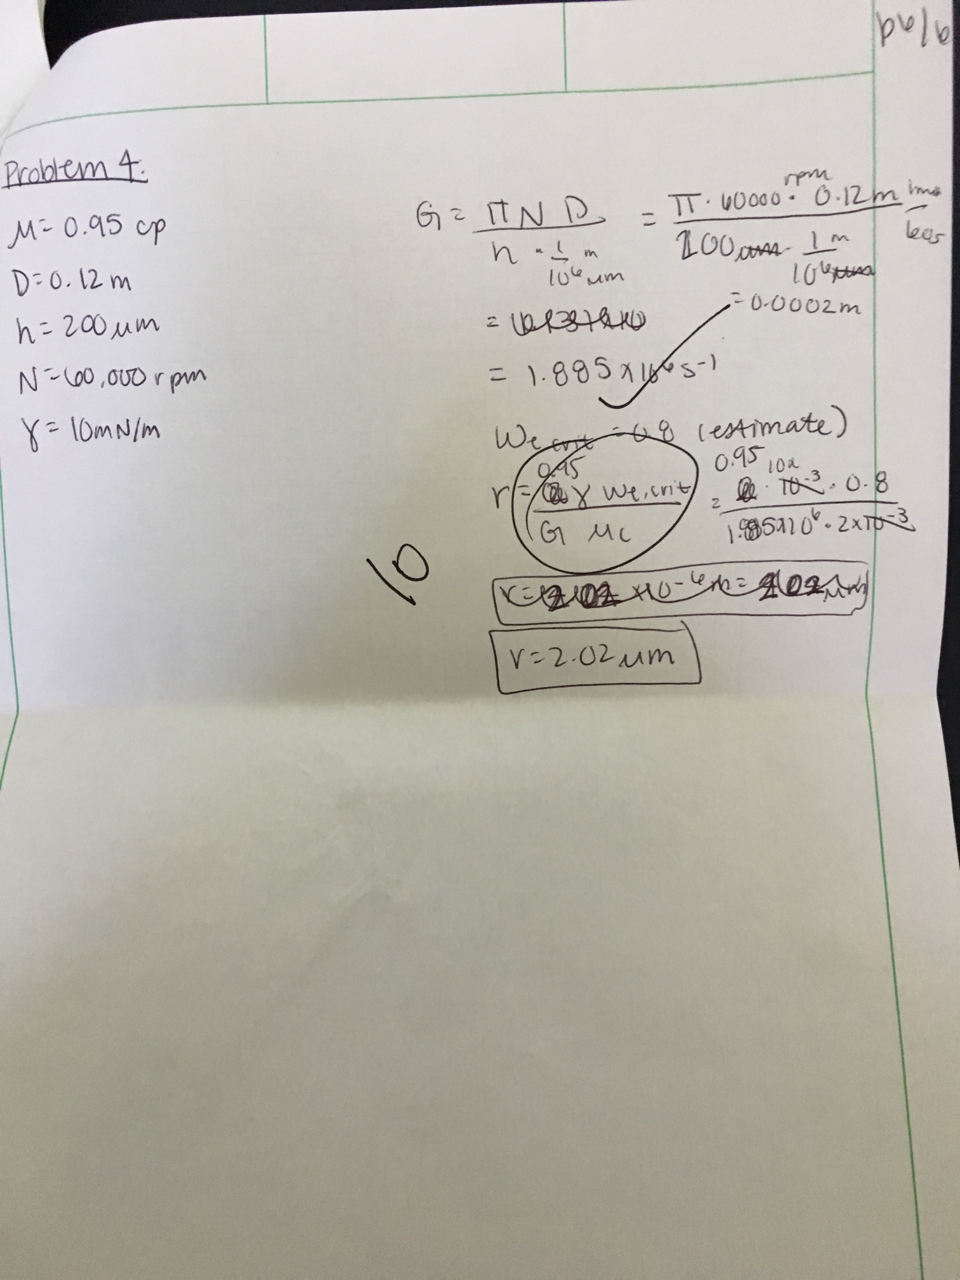 9/9d
Problem 4.
μ = 0.95 cp
D = 0.12 m
h = 200 μm
N = 60,000 rpm
γ = 10mN/m
G = π N D / h · 1/10⁶ m/μm = π · 60000 rpm · 0.12 m / 200 μm · 1 m/10⁶ μm
= 0.0002 m
= 1.885 x 10⁶ s⁻¹
We crit = 0.8 (estimate)
r = 0.95 γ We,crit / G μc = 0.95 · 10x10⁻³ · 0.8 / 1.885x10⁶ · 2x10⁻³
10
r = 2.02 μm